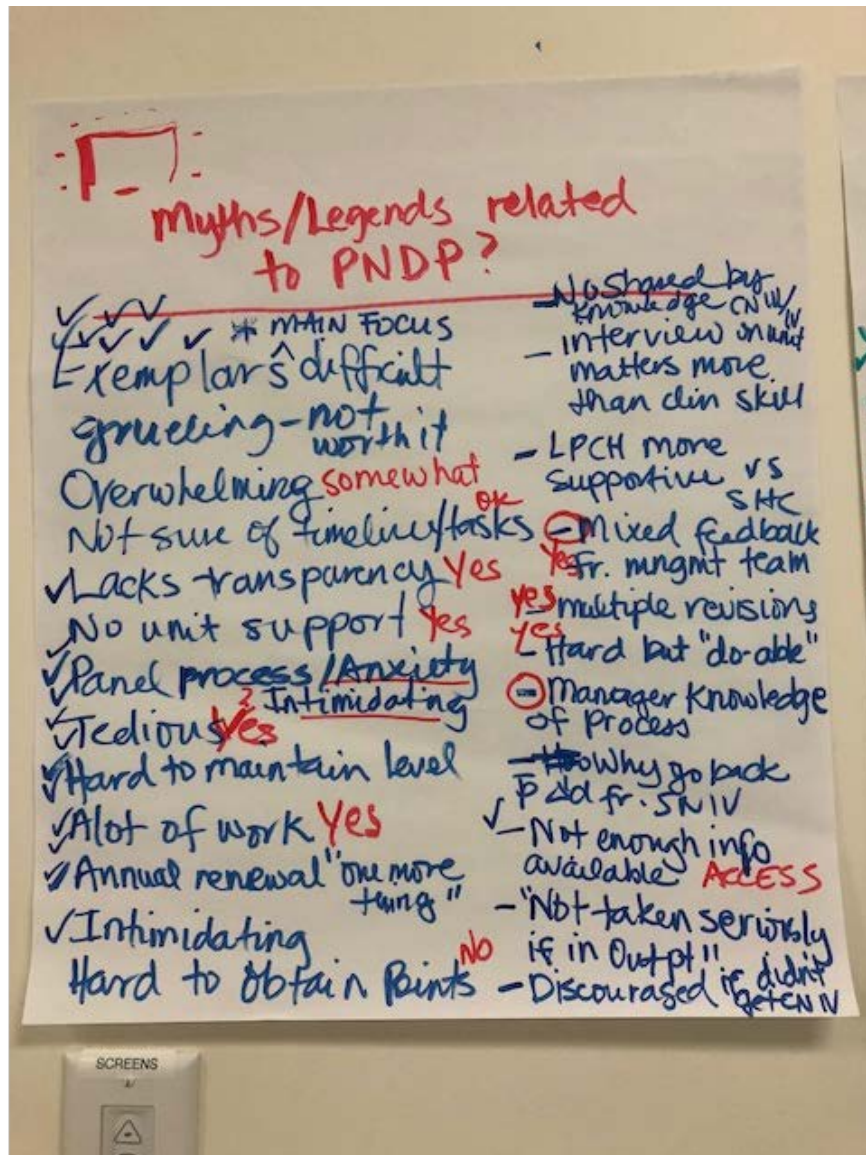 Myths/Legends related
to PNDP?
* MAIN FOCUS
Exemplars difficult
grueling - not
worth it
Overwhelming somewhat
Not sure of timeline/tasks OK
Lacks transparency Yes
No unit support Yes
Panel process/Anxiety
Intimidating
Tedious Yes
Hard to maintain level
Alot of work Yes
Annual renewal "one more
thing"
Intimidating
Hard to obtain Points NO
- No shared by
knowledge CN III/
IV
- interview on unit
matters more
than clin skill
- LPCH more
supportive vs
SHC
- Mixed feedback
Yes fr. mngmt team
yes - multiple revisions
yes - Hard but "do-able"
- Manager knowledge
of process
- Why go back
fr. SNIV
- Not enough info
available ACCESS
- "Not taken seriously
if in Outpt"
- Discouraged if didn't
get CN IV
SCREENS